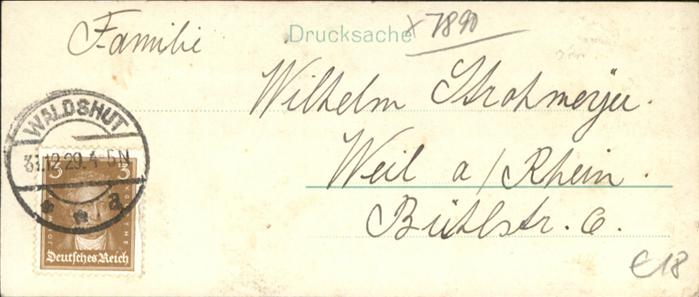 Drucksache
x 7890
Familie
Wilhelm Strohmeyer.
Weil a/Rhein.
Bühlstr. 6.
WALDSHUT
31.12.29. 4-5 N
* * a
3 3
Deutsches Reich
€18